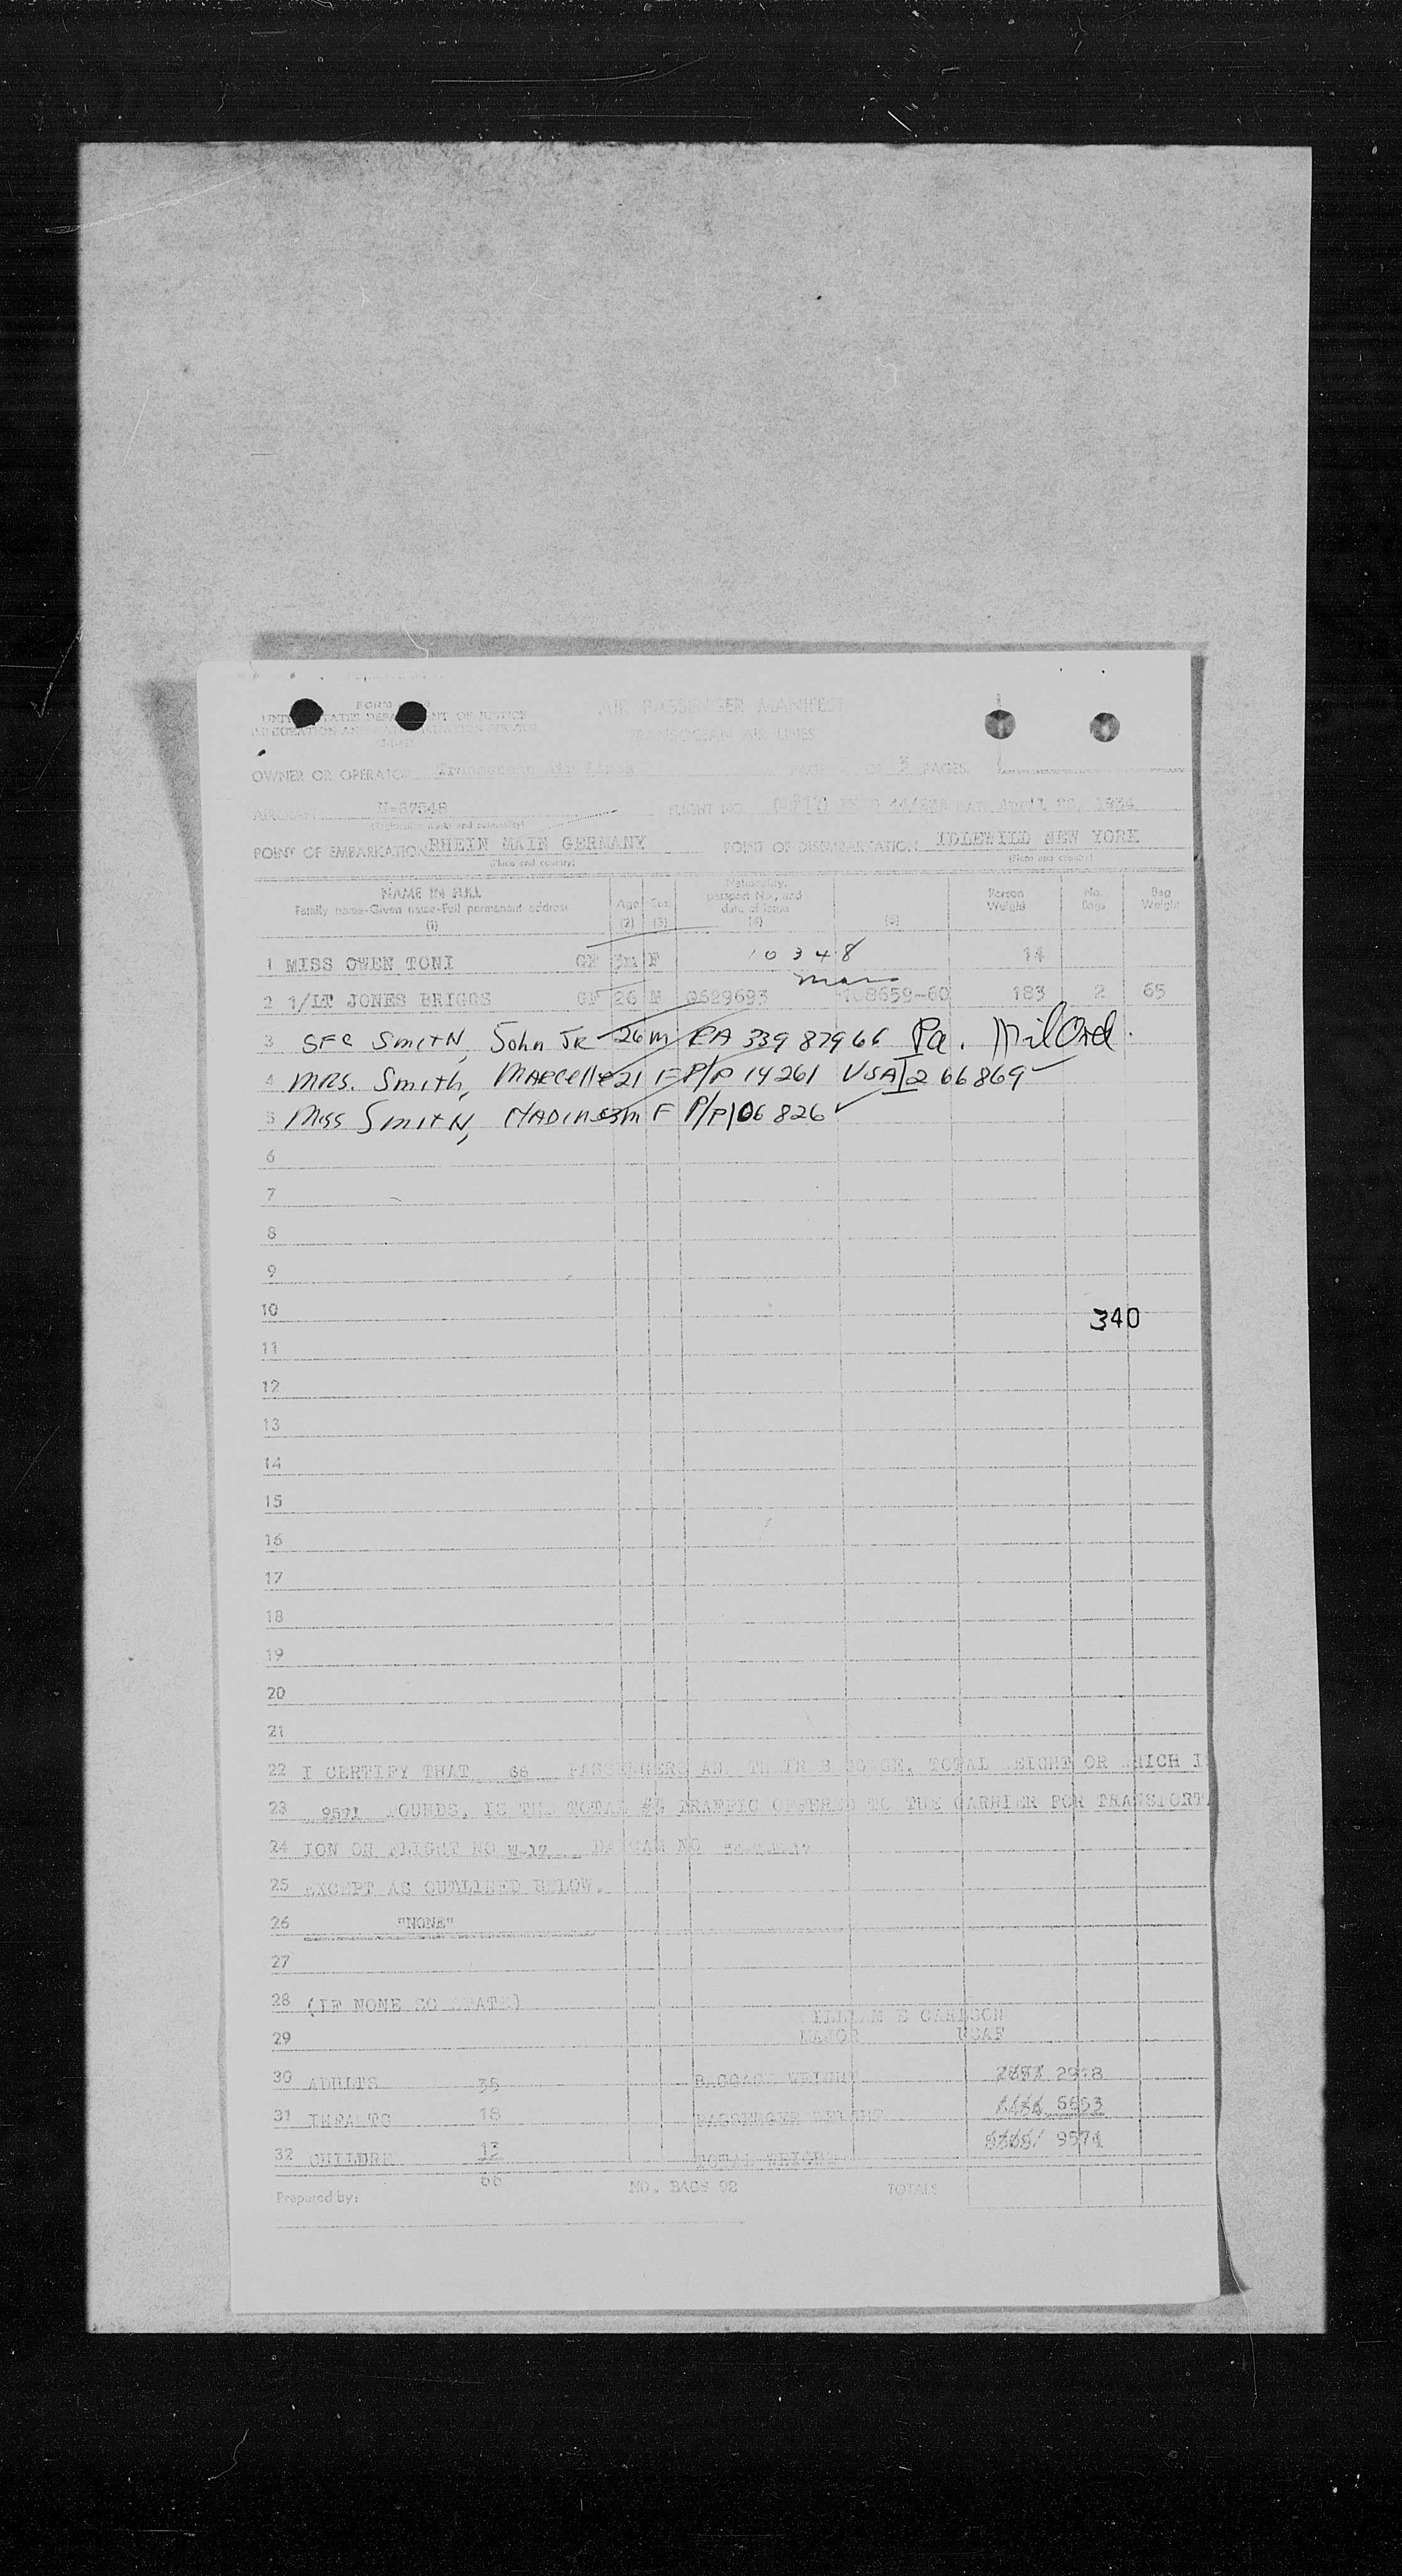 FORM
UNITED STATES DEPARTMENT OF JUSTICE
IMMIGRATION AND NATURALIZATION SERVICE
AIR PASSENGER MANIFEST
TRANSOCEAN AIR LINES
OWNER OR OPERATOR Transocean Air Lines PAGE OF 3 PAGES
AIRCRAFT N-67548 FLIGHT NO. DATE April 26, 1954
(Registration marks and nationality)
POINT OF EMBARKATION RHEIN MAIN GERMANY POINT OF DISEMBARKATION IDLEWILD NEW YORK
(Place and country) (Place and country)
NAME IN FULL Age Sex Nationality, passport No., and date of issue Person Weight No. Bags Bag Weight
Family name-Given name-Full permanent address
(1) (2) (3) (4) (5)
1 MISS OWEN TONI GF 3m F 10348 14
2 1/LT JONES BRIGGS GF 26 M O629693 108659-60 183 2 65
3 SFC SmitH, John JR 26 m RA 33987966 Pa. Mil Ord.
4 MRS. Smith, MARCelle 21 F P/P 14261 USA I 266869 ✓
5 Miss SmitH, NADINE 3m F P/P 106826 ✓
6
7
8
9
10
340
11
12
13
14
15
16
17
18
19
20
21
22 I CERTIFY THAT 66 PASSENGERS AND THEIR BAGGAGE, TOTAL WEIGHT OR WHICH I
23 9571 POUNDS, IS THE TOTAL TRAFFIC OFFERED TO THE CARRIER FOR TRANSPORT
24 ION ON FLIGHT NO W-17
25 EXCEPT AS OUTLINED BELOW.
26 "NONE"
27
28 (IF NONE SO STATE)
WILLIAM E CARLSON
29 MAJOR USAF
30 ADULTS 35 BAGGAGE WEIGHT 2918
31 INFANTS 18 PASSENGER WEIGHT 6653
32 CHILDREN 13 TOTAL WEIGHT 9571
66
Prepared by: NO. BAGS 92 TOTALS